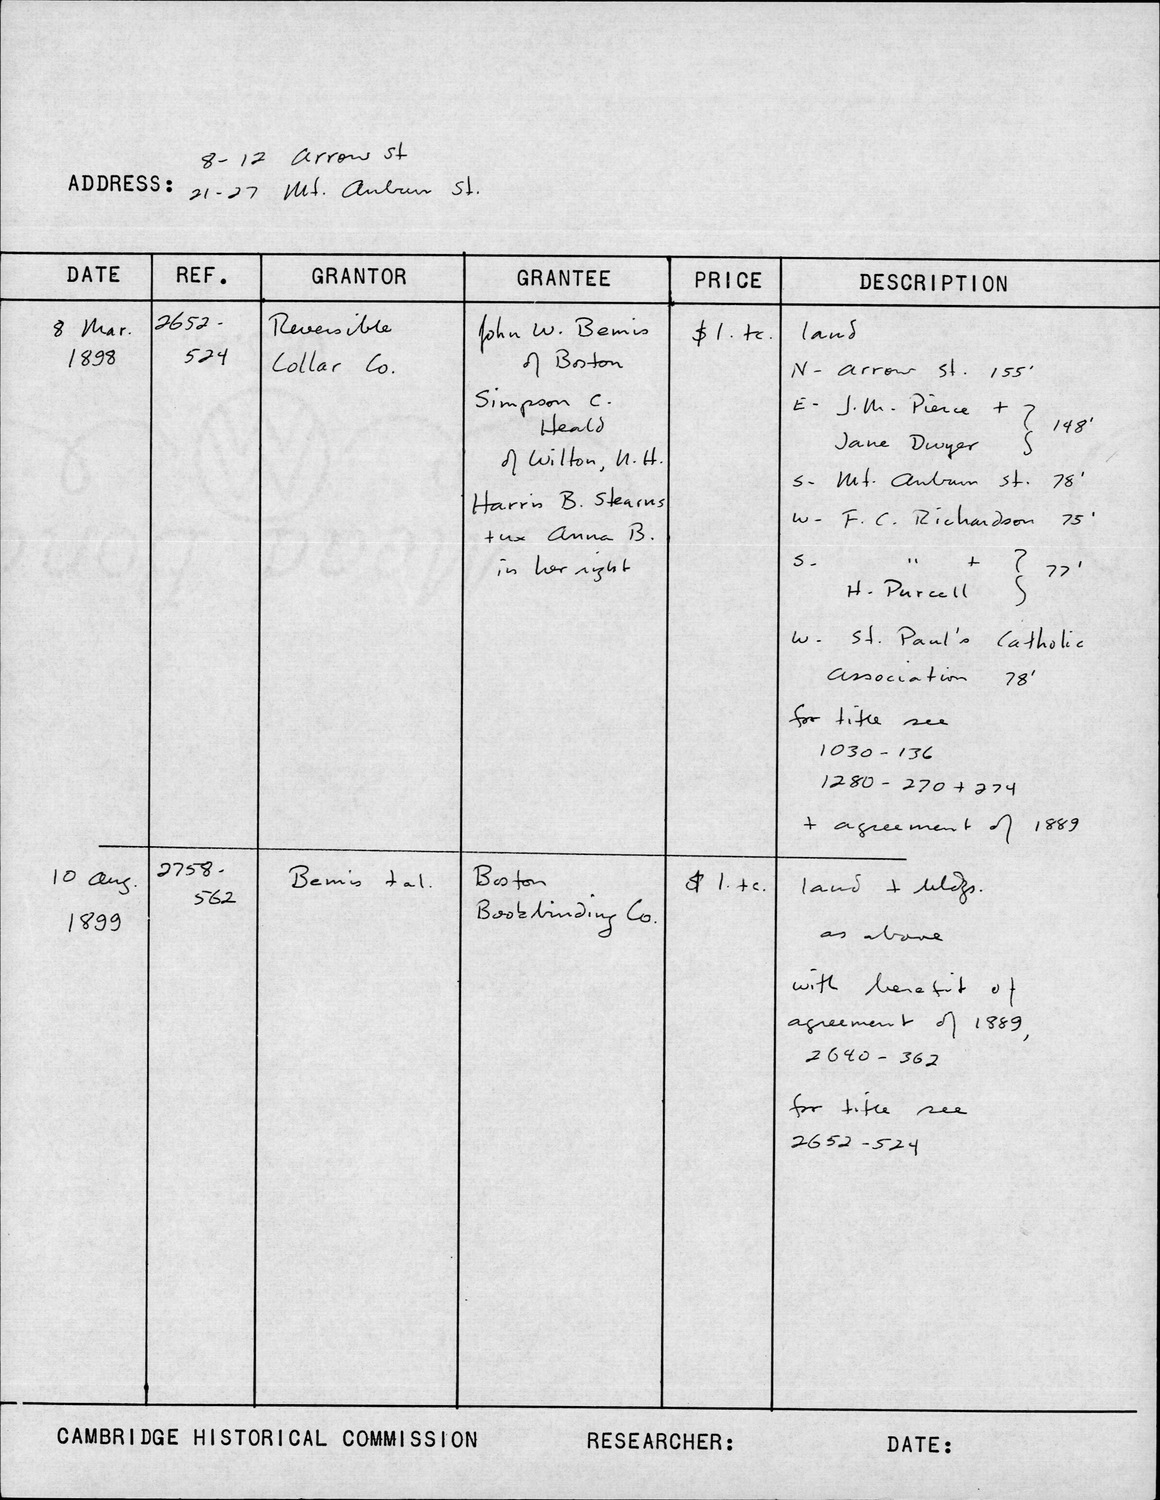 8-12 Arrow St
ADDRESS: 21-27 Mt. Auburn St.
DATE REF. GRANTOR GRANTEE PRICE DESCRIPTION
8 Mar.
1898
2652-
524
Reversible
Collar Co.
John W. Bemis
of Boston
Simpson C.
Heald
of Wilton, N.H.
Harris B. Stearns
+ux Anna B.
in her right
$1. tc.
land
N- Arrow St. 155'
E- J.M. Pierce +
Jane Dwyer } 148'
S- Mt. Auburn St. 78'
W- F.C. Richardson 75'
S- " +
H. Purcell } 77'
W- St. Paul's Catholic
Association 78'
for title see
1030-136
1280-270+274
+ agreement of 1889
10 Aug.
1899
2758-
562
Bemis + al.
Boston
Bookbinding Co.
$1. tc.
land + bldgs.
as above
with benefit of
agreement of 1889,
2640-362
for title see
2652-524
CAMBRIDGE HISTORICAL COMMISSION RESEARCHER: DATE: